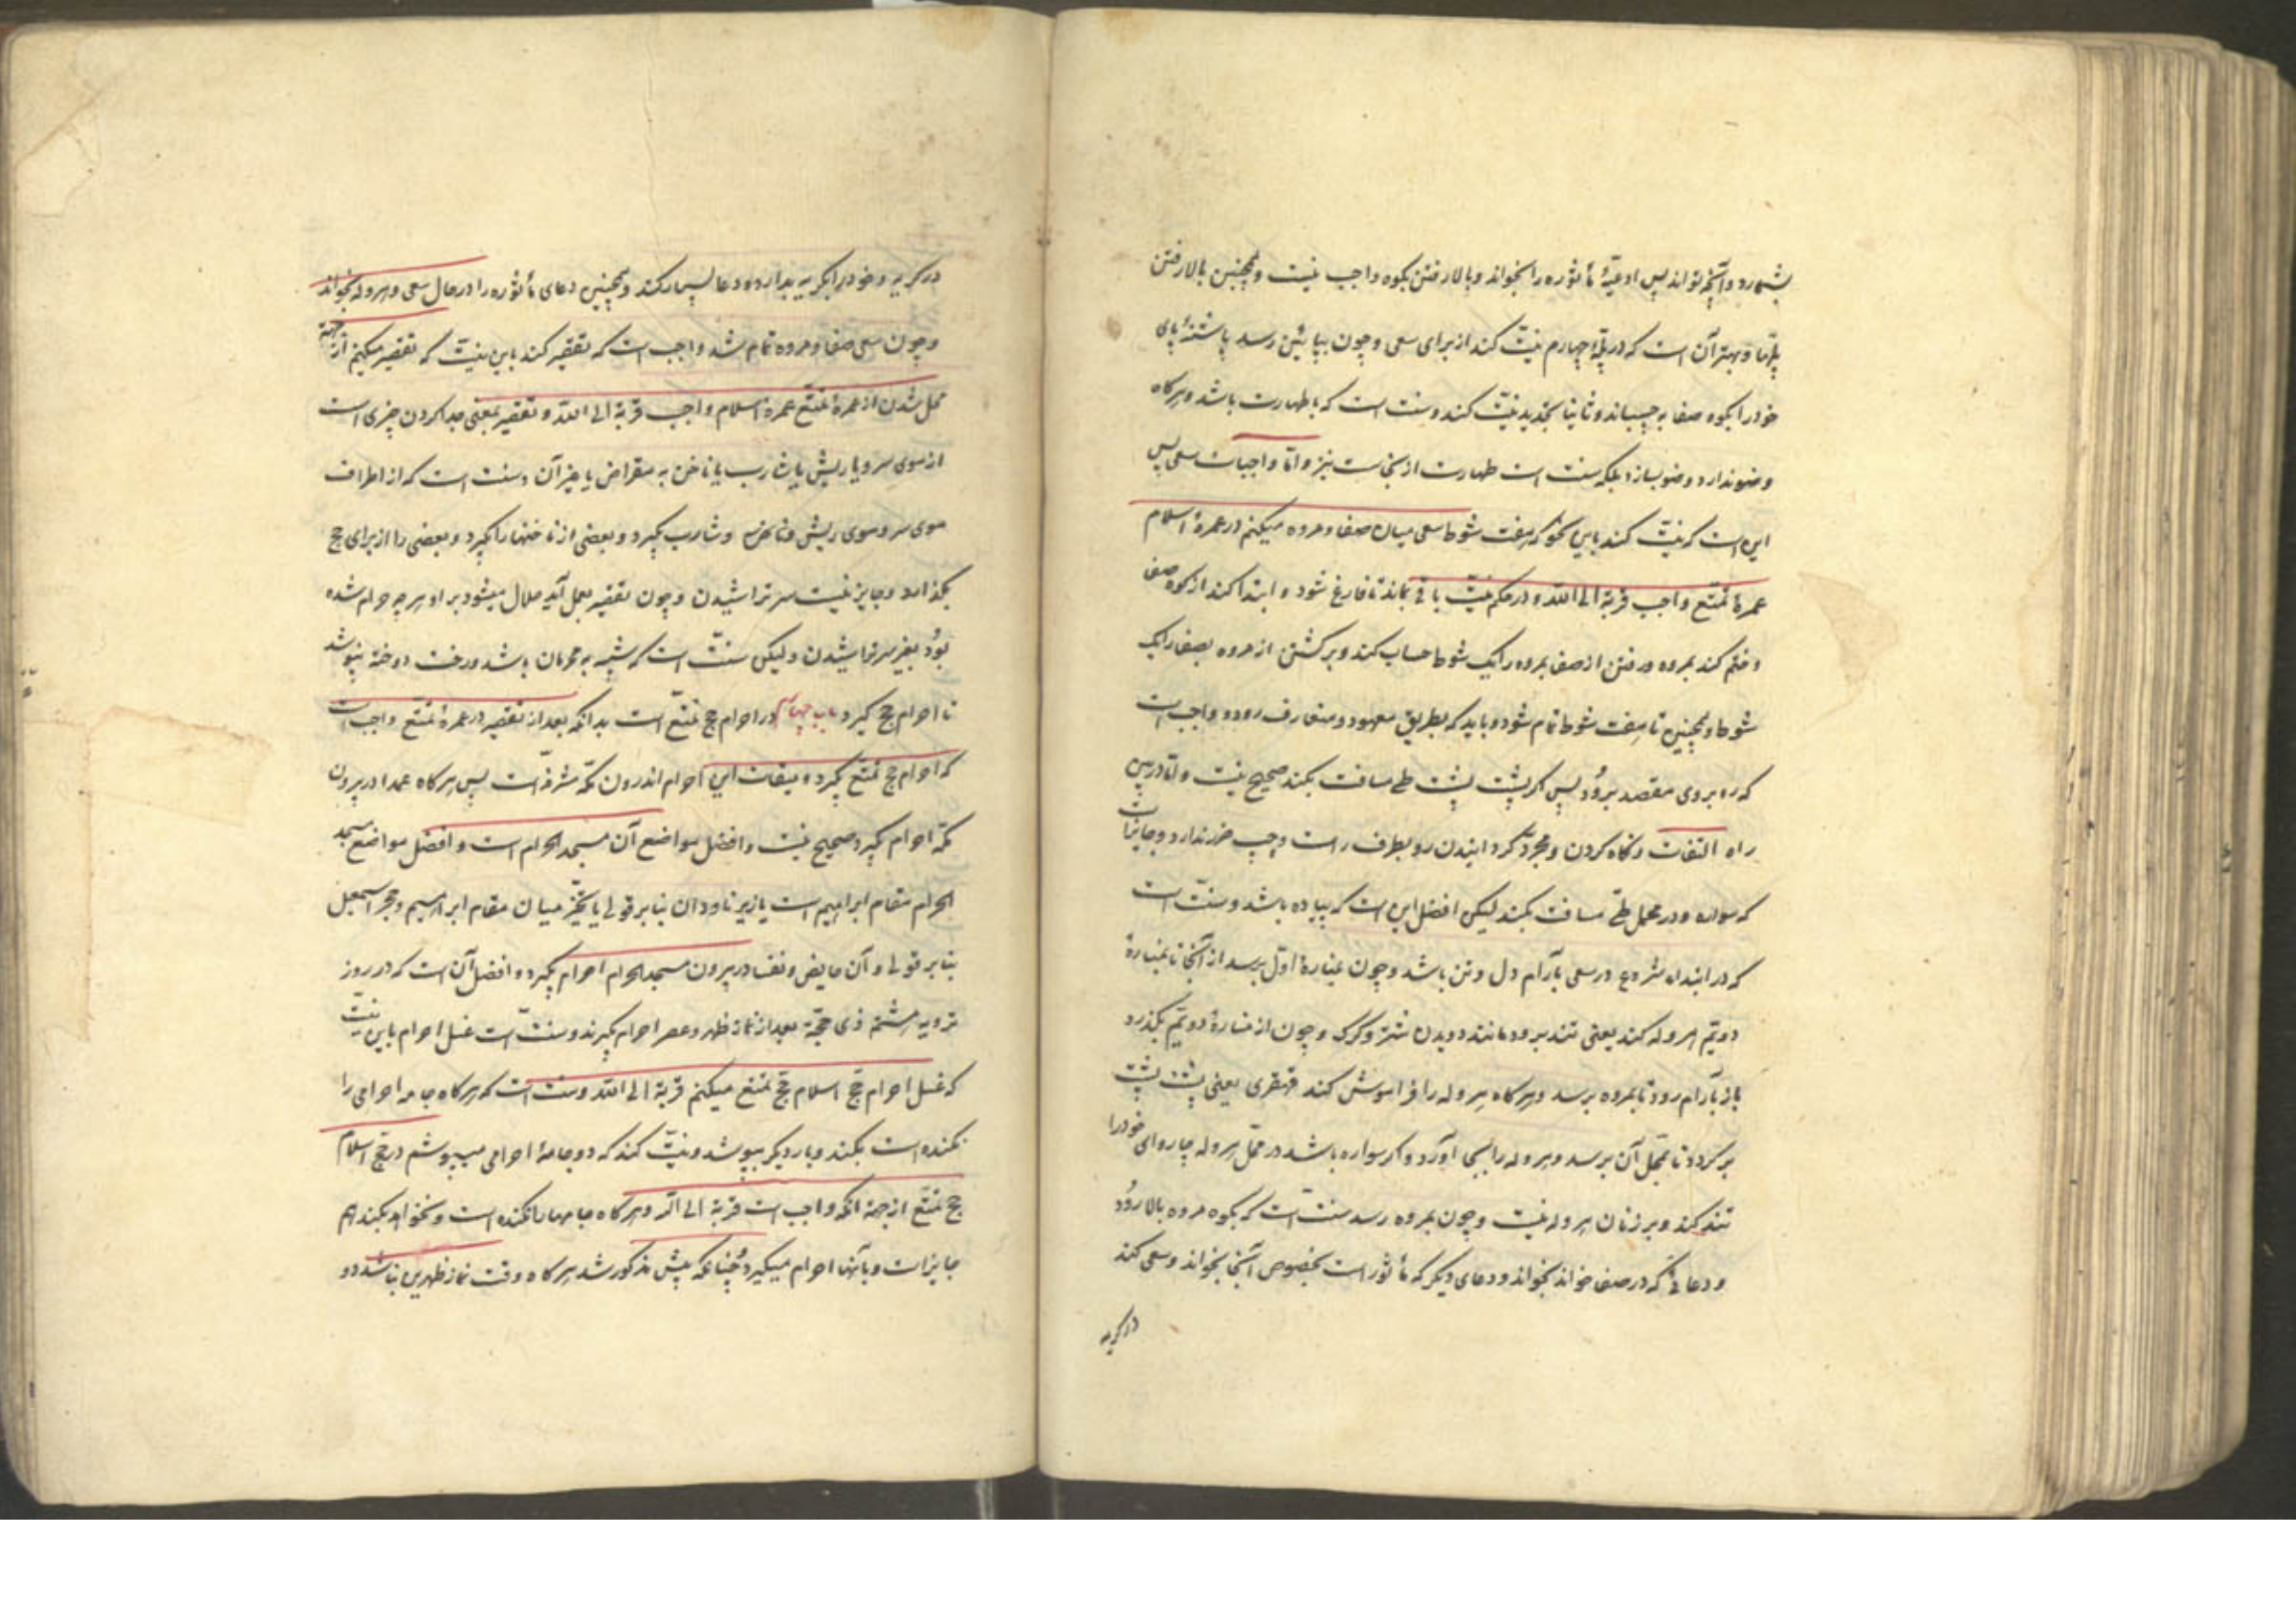 بشمارد و آنچه تواند پس ادعیهٔ مأثوره را بخواند و بالا رفتن بکوه واجب نیست و همچنین بالا رفتن
پلّها و بهتر آن است که در پلّهٔ چهارم نیّت کند از برای سعی و چون بپائین رسد پاشنهٔ پای
خود را بکوه صفا بچسباند و ثانیا تجدید نیّت کند و سنت است که با طهارت باشد و هرکاه
وضو ندارد وضو بسازد بلکه سنت است طهارت از نجاست نیز و امّا واجبات سعی پس
این است که نیّت کند باین نحو که هفت شوط سعی میان صفا و مروه میکنم در عمرهٔ اسلام
عمرهٔ تمتّع واجب قربة الی الله و در حکم نیّت باقی بماند تا فارغ شود و ابتدا کند از کوه صفا
و ختم کند بمروه و رفتن از صفا بمروه را یک شوط حساب کند و برکشتن از مروه بصفا را یک
شوط و همچنین تا هفت شوط تمام شود و باید که بطریق معهود و متعارف رود و واجب است
که ره بروی مقصد برود پس اکر پشت پشت طی مسافت بکند صحیح نیست و امّا در بین
راه التفات و نکاه کردن و مجرّد کردانیدن رو بطرف راست و چپ ضرر ندارد و جایز است
که سواره و در محمل طیّ مسافت بکند لیکن افضل این است که پیاده باشد و سنّت است
که در ابتداء شروع در سعی بآرام دل و تن باشد و چون بمنارهٔ اوّل برسد از آنجا تا بمنارهٔ
دویّم هروله کند یعنی تند برود مانند دویدن شتر و کرک و چون از منارهٔ دویّم بکذرد
باز بآرام رود تا بمروه برسد و هرکاه هروله را فراموش کند قهقری یعنی پشت پشت
برکردد تا بمحلّ آن برسد و هروله را بجا آورد و اکر سواره باشد در محلّ هروله چاروای خود را
تند کند و بر زنان هروله نیست و چون بمروه رسد سنّت است که بکوه مروه بالا رود
و دعائی که در صفا خواند بخواند و دعای دیکر که مأثور است بخصوص آنجا بخواند و سعی کند
در کریه
در کریه و خود را بکریه بدارد و دعا بسیار کند و همچنین دعای مأثوره را در حال سعی و هروله بخواند
و چون سعی صفا و مروه تمام شد واجب است که تقصیر کند باین نیّت که تقصیر میکنم از جهة
محل شدن از عمرهٔ تمتّع عمرهٔ اسلام واجب قربة الی الله و تقصیر بمعنی جدا کردن چیزی است
از موی سر و یا ریش یا شارب یا ناخن به مقراض یا غیر آن و سنت است که از اطراف
موی سر و موی ریش و شارب بکیرد و بعضی از ناخنها را بکیرد و بعضی را از برای حج
بکذارد و جایز نیست سر تراشیدن و چون تقصیر بعمل آید حلال میشود بر او هر چه حرام شده
بود بغیر سر تراشیدن و لیکن سنّت است که شبیه به محرمان باشد و رخت دوخته نپوشد
تا احرام حج کیرد باب چهارم در احرام حج تمتّع است بدانکه بعد از تقصیر در عمرهٔ تمتّع واجب است
که احرام حج تمتّع بکیرد و میقات این احرام اندرون مکّه مشرّفه است پس هرکاه عمدا در بیرون
مکّه احرام بکیرد صحیح نیست و افضل مواضع آن مسجد الحرام است و افضل مواضع مسجد
الحرام مقام ابراهیم است یا زیر ناودان بنا بر قولی یا مخیّر میان مقام ابراهیم و حجر اسمعیل
بنا بر قولی و آن حایض و نفسا در بیرون مسجد الحرام احرام بکیرد و افضل آن است که در روز
ترویه هشتم ذی حجّة بعد از نماز ظهر و عصر احرام بکیرند و سنّت است غسل احرام باین نیّت
که غسل احرام حجّ اسلام حجّ تمتع میکنم قربة الی الله و سنت است که هرکاه جامه احرامی را
نکنده است بکند و بار دیکر بپوشد و نیّت کند که دو جامهٔ احرامی میپوشم در حجّ اسلام
حج تمتّع از جهة آنکه واجب است قربة الی الله و هرکاه جامها را نکنده است و نخواهد بکند هم
جایز است و بآنها احرام میکیرد چنانکه پیش مذکور شد هرکاه وقت نماز ظهرین نباشد دو